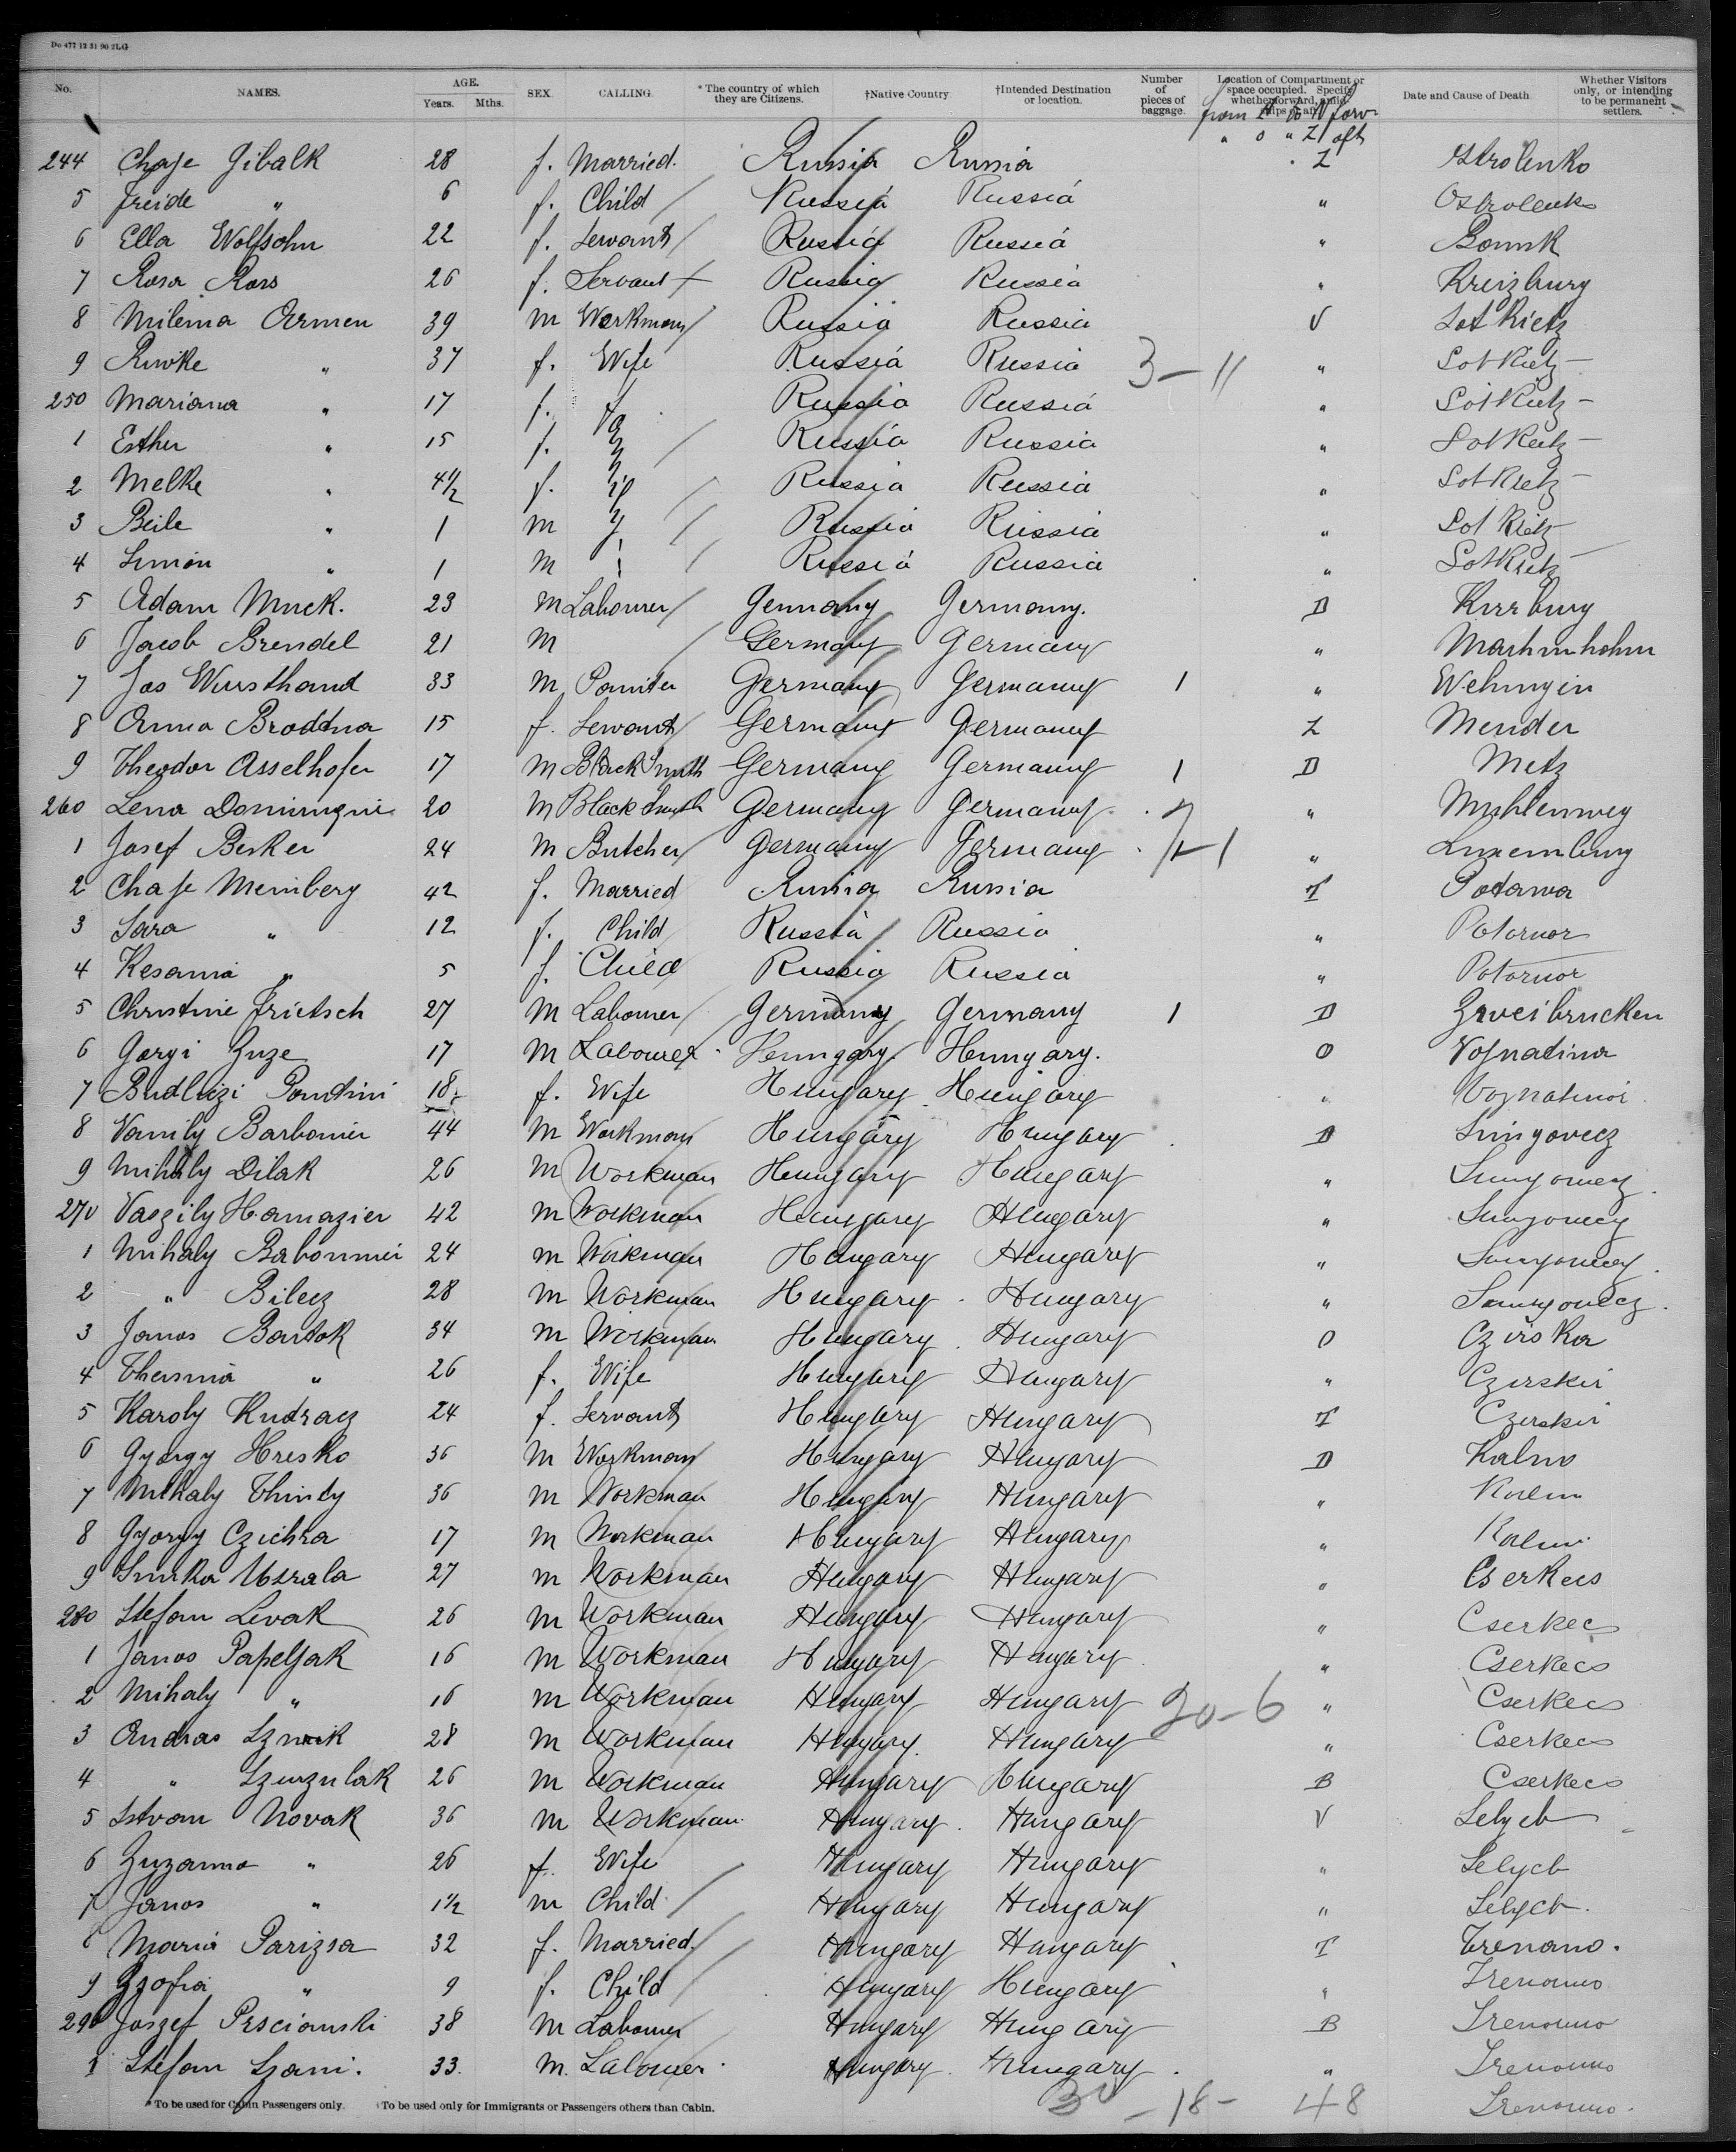 Do 477 12 31 90 2LG
No. NAMES. AGE. Years. Mths. SEX. CALLING. * The country of which they are Citizens. †Native Country †Intended Destination or location. Number of pieces of baggage. Location of Compartment or space occupied. Specify whether forward, amidships or aft. Date and Cause of Death Whether Visitors only, or intending to be permanent settlers.
from to forw
" O " Z aft
244 Chaje Gibalk 28 f. Married. Russia Russia " Z Ostrolenko
5 Freide " 6 f. Child Russia Russia " Ostrolenko
6 Ella Wolfsohn 22 f. Servant Russia Russia "
7 Rosa Rors 26 f. Servant Russia Russia " Kreizburg
8 Milema Armen 39 m Workman Russia Russia V Sotkietz
9 Riwke " 37 f. Wife Russia Russia 3-11 " Sotkietz
250 Mariana " 17 f. Russia Russia " Sotkietz
1 Esther " 15 f. Russia Russia " Sotkietz
2 Melke " 4 1/2 f. Russia Russia " Sotkietz
3 Beile " 1 m Russia Russia " Sotkietz
4 Simon " 1 m Russia Russia " Sotkietz
5 Adam Muck. 23 m Labourer Germany Germany. D Kirrburg
6 Jacob Brendel 21 m Germany Germany "
7 Jos Wursthand 33 m Painter Germany Germany 1 "
8 Anna Broddna 15 f. Servant Germany Germany Z Mender
9 Theodor Asselhofer 17 m Black Smith Germany Germany 1 D Metz
260 Lena 20 m Black Smith Germany Germany " Muhlenweg
1 Josef Besker 24 m Butcher Germany Germany " Luxemburg
2 Chaje Meinberg 42 f. Married Russia Russia I Potawa
3 Sara " 12 f. Child Russia Russia "
4 Kesania " 5 f. Child Russia Russia "
5 Christine Frietsch 27 m Labourer Germany Germany 1 D Zweibrucken
6 Gorgi Zuze 17 m Labourer Hungary. Hungary. O Vojnatina
7 18 f. Wife Hungary Hungary " Vojnatina
8 Barbonier 44 m Workman Hungary Hungary D
9 Mihaly Dilak 26 m Workman Hungary Hungary "
270 Vaszily Hamazier 42 m Workman Hungary Hungary "
1 Mihaly Babonniei 24 m Workman Hungary Hungary "
2 " Bilecz 28 m Workman Hungary Hungary "
3 Janos Bartok 34 m Workman Hungary Hungary O Czirska
4 " 26 f. Wife Hungary Hungary "
5 Karoly Kudracz 24 f. Servant Hungary Hungary I
6 György Hresko 36 m Workman Hungary Hungary D Kalno
7 Mihaly 36 m Workman Hungary Hungary "
8 György Czichra 17 m Workman Hungary Hungary "
9 27 m Workman Hungary Hungary " Cserkes
280 Stefan Levak 26 m Workman Hungary Hungary " Cserkec
1 Janos Papeljak 16 m Workman Hungary Hungary " Cserkecs
2 Mihaly " 16 m Workman Hungary Hungary 20-6 " Cserkecs
3 Andras 28 m Workman Hungary Hungary " Cserkecs
4 " Szurzulak 26 m Workman Hungary Hungary B Cserkecs
5 Istvan Novak 36 m Workman Hungary Hungary V Selycb
6 Zuzanna " 26 f. Wife Hungary Hungary " Selycb
7 Janos " 1 1/2 m Child Hungary Hungary " Selycb.
8 Maria Parizsa 32 f. Married. Hungary Hungary I
9 Zsofia " 9 f. Child Hungary Hungary "
290 Joszef Prscianski 38 m Labourer Hungary Hungary B
1 Stefan Szani. 33. m. Labourer Hungary Hungary "
* To be used for Cabin Passengers only. † To be used only for Immigrants or Passengers others than Cabin. 30 - 18 - 48